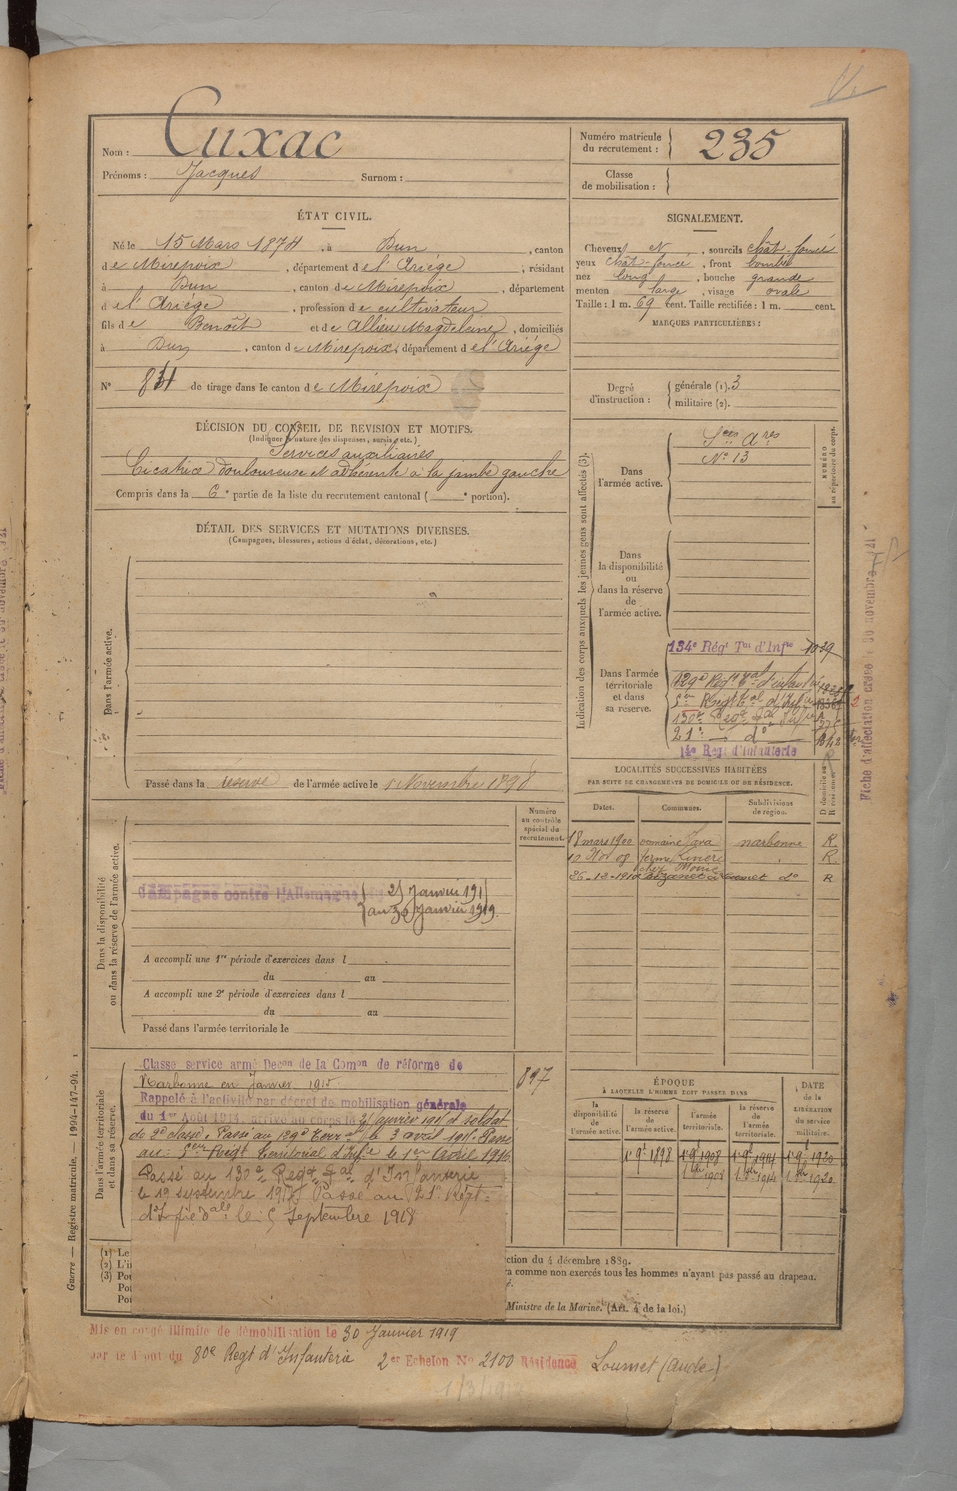 Nom : Cuxac
Prénoms : Jacques Surnom :
Numéro matricule du recrutement : 235
Classe de mobilisation :
ÉTAT CIVIL.
Né le 15 Mars 1874, à Dun, canton
de Mirepoix, département de l'Ariége, résidant
à Dun, canton de Mirepoix, département
de l'Ariége, profession de cultivateur
fils de Benoît et de Allieu Magdelaine, domiciliés
à Dun, canton de Mirepoix, département de l'Ariége
N° de tirage dans le canton de Mirepoix
SIGNALEMENT.
Cheveux N, sourcils chât-foncé
yeux chât-foncé, front bombé
nez long, bouche grande
menton large, visage ovale
Taille : 1 m. 69 cent. Taille rectifiée : 1 m. cent.
MARQUES PARTICULIÈRES :
Degré d'instruction : générale (1). 3
militaire (2).
DÉCISION DU CONSEIL DE REVISION ET MOTIFS.
(Indiquer la nature des dispenses, sursis, etc.)
Services auxiliaires
Cicatrice douloureuse et adhérente à la jambe gauche
Compris dans la 6e partie de la liste du recrutement cantonal ( e portion).
DÉTAIL DES SERVICES ET MUTATIONS DIVERSES.
(Campagnes, blessures, actions d'éclat, décorations, etc.)
Dans l'armée active.
Passé dans la réserve de l'armée active le 1 Novembre 1898
Indication des corps auxquels les jeunes gens sont affectés (3).
NUMÉRO au répertoire du corps.
Dans l'armée active.
Sces Ares
N° 13
Dans la disponibilité ou dans la réserve de l'armée active.
Dans l'armée territoriale et dans sa réserve.
134e Régt Tal d'Infie
129e Regt Tal d'infanterie
5em Regt tal d'Infie
130e
21e do
14e Regt d'Infanterie
Fiche d'affectation
LOCALITÉS SUCCESSIVES HABITÉES
PAR SUITE DE CHANGEMENTS DE DOMICILE OU DE RÉSIDENCE.
Dates. Communes. Subdivisions de région. D domicile ou R résidence
18 mars 1900 domaine narbonne R.
10 Nov 08 ferme R.
26-12-1910 do R
Numéro au contrôle spécial du recrutement.
Dans la disponibilité ou dans la réserve de l'armée active.
Campagne contre l'Allemagne
au 30 Janvier 1919.
A accompli une 1re période d'exercices dans l
du au
A accompli une 2e période d'exercices dans l
du au
Passé dans l'armée territoriale le
Dans l'armée territoriale et dans sa réserve.
Classé service armé Decon de la Comon de réforme de
Narbonne en Janvier 1915
Rappelé à l'activité par décret de mobilisation générale
du 1er Août 1914 arrivé au corps le Janvier 1915 et soldat
de 2e classe. Passé au 129e Terr al le 3 avril 1915. Passé
au 5em Régt territorial d'Infie le 1er Avril 1916
Passé au 130e Regt Tal d'Infanterie
le 19 septembre 1917 Passé au 21e Régt
d'Infie le 5 Septembre 1918
897
ÉPOQUE
À LAQUELLE L'HOMME DOIT PASSER DANS
la disponibilité de l'armée active. la réserve de l'armée active. l'armée territoriale. la réserve de l'armée territoriale.
DATE de la LIBÉRATION du service militaire.
1 9bre 1898 1 9bre 1908 1 9bre 1914 1 9bre 1920
1908 1914 1920
(1) Le
(2) L'i
(3) Pou
Pou
ction du 4 décembre 1889.
a comme non exercés tous les hommes n'ayant pas passé au drapeau.
Ministre de la Marine. (Art. 4 de la loi.)
Guerre — Registre matricule. — 1994-147-94.
Mis en congé illimité de démobilisation le 30 Janvier 1919
par le dépôt du 80e Regt d'Infanterie 2er Echelon N° 2100 Résidence (Aude)